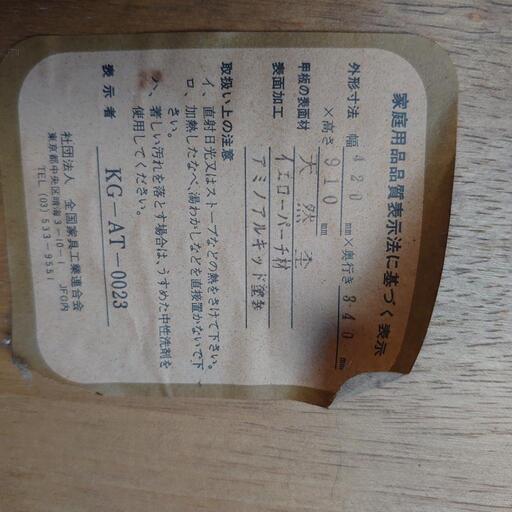 家庭用品品質表示法に基づく表示
外形寸法 幅420mm×奥行き340mm
×高さ910mm
甲板の表面材 天然
イエローバーチ材
表面加工 アミノアルキッド塗
取扱い上の注意
イ、直射日光又はストーブなどの熱をさけて下さい。
ロ、加熱したなべ、湯わかしなどを直接置かないで下
さい。
ハ、著しい汚れを落とす場合は、うすめた中性洗剤を
使用してください。
表示者 KG-AT-0023
社団法人 全国家具工業連合会
東京都中央区晴海3-10-1 JFC内
TEL (03) 533-9551